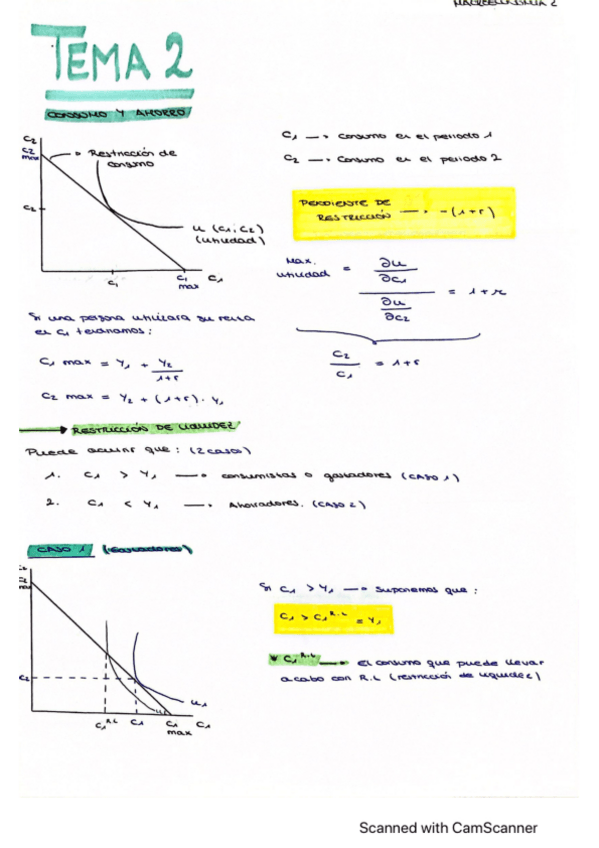 MACROECONOMIA 2
TEMA 2
CONSUMO Y AHORRO
C2
C2 max
Restricción de consumo
C2
u (C1, C2)
(utilidad)
C1
C1 max
C1
C1 → Consumo en el periodo 1
C2 → Consumo en el periodo 2
PENDIENTE DE RESTRICCIÓN → -(1+r)
Max. utilidad = ∂u/∂C1 / ∂u/∂C2 = 1+r
C2/C1 = 1+r
Si una persona utilizara su renta
en C1 tendríamos:
C1 max = Y1 + Y2/1+r
C2 max = Y2 + (1+r) · Y1
RESTRICCIÓN DE LIQUIDEZ
Puede ocurrir que: (2 casos)
1. C1 > Y1 → consumistas o gastadores (CASO 1)
2. C1 < Y1 → Ahorradores. (CASO 2)
CASO 1 (Gastadores)
C2
C2 max
C2
u1
u
C1 R.L
C1
C1 max
C1
Si C1 > Y1 → Suponemos que:
C1 > C1 R.L = Y1
* C1 R.L → El consumo que puede llevar
a cabo con R.L (restricción de liquidez)
Scanned with CamScanner